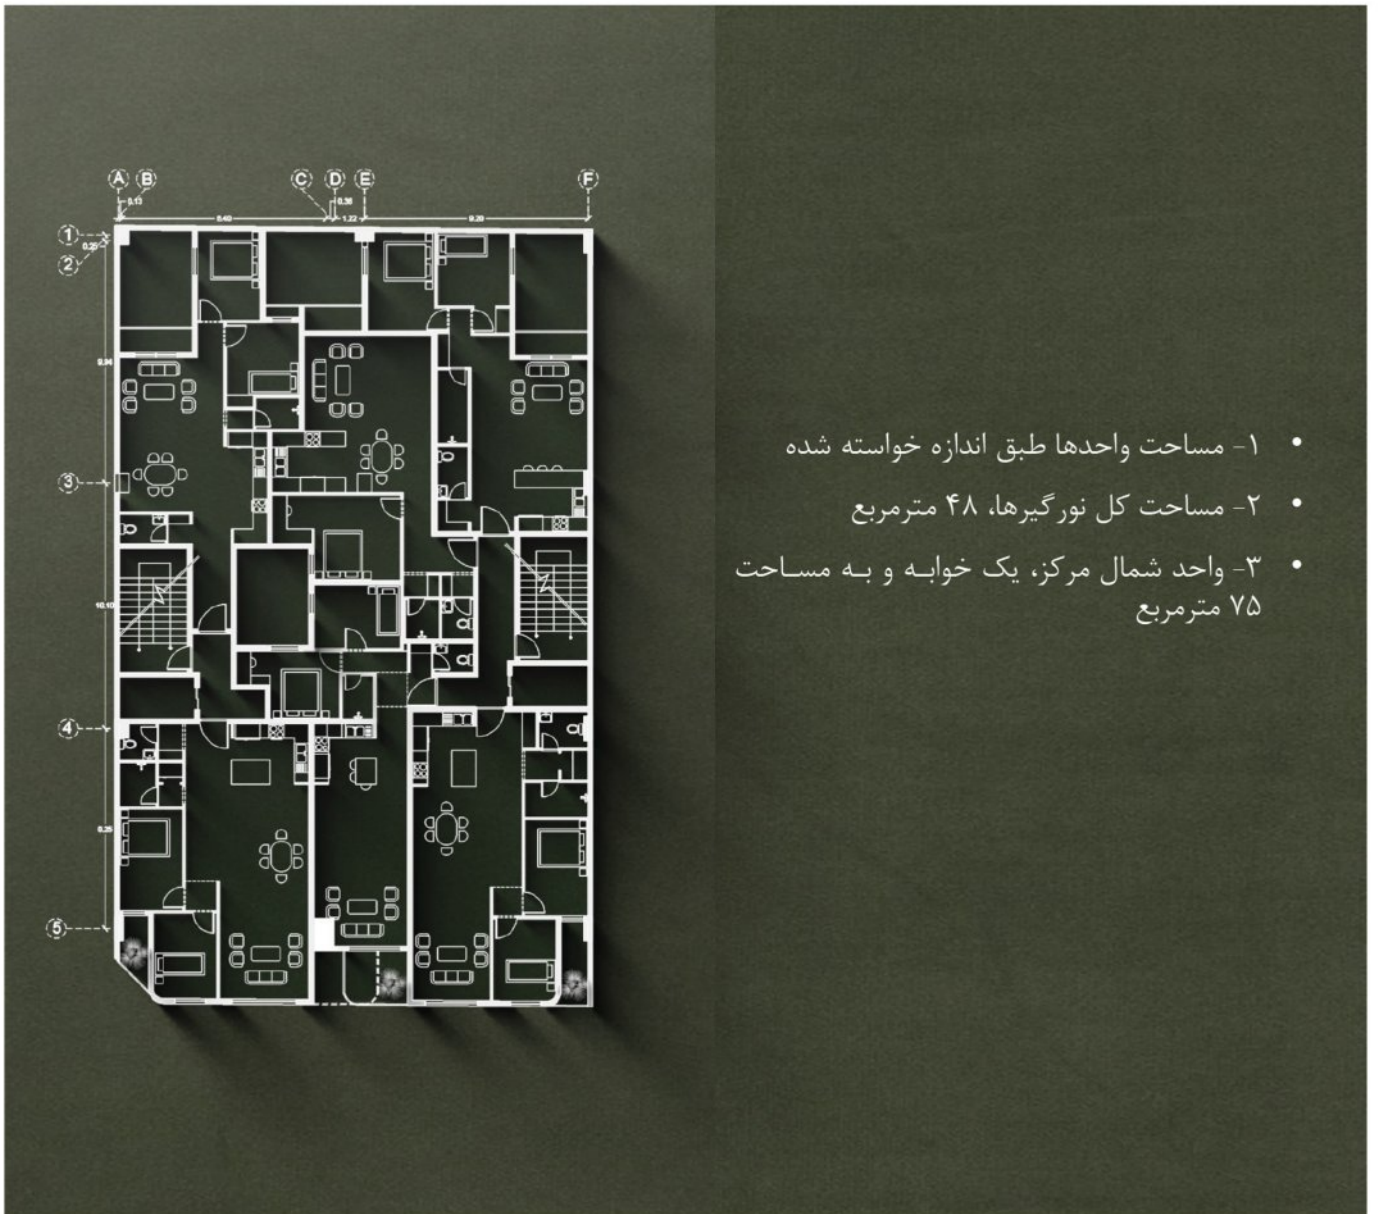 A B C D E F
0.13 0.36
8.40 1.22 9.20
1
0.25
2
9.94
3
10.10
4
8.25
5
• ۱- مساحت واحدها طبق اندازه خواسته شده
• ۲- مساحت کل نورگیرها، ۴۸ مترمربع
• ۳- واحد شمال مرکز، یک خوابه و به مساحت
۷۵ مترمربع